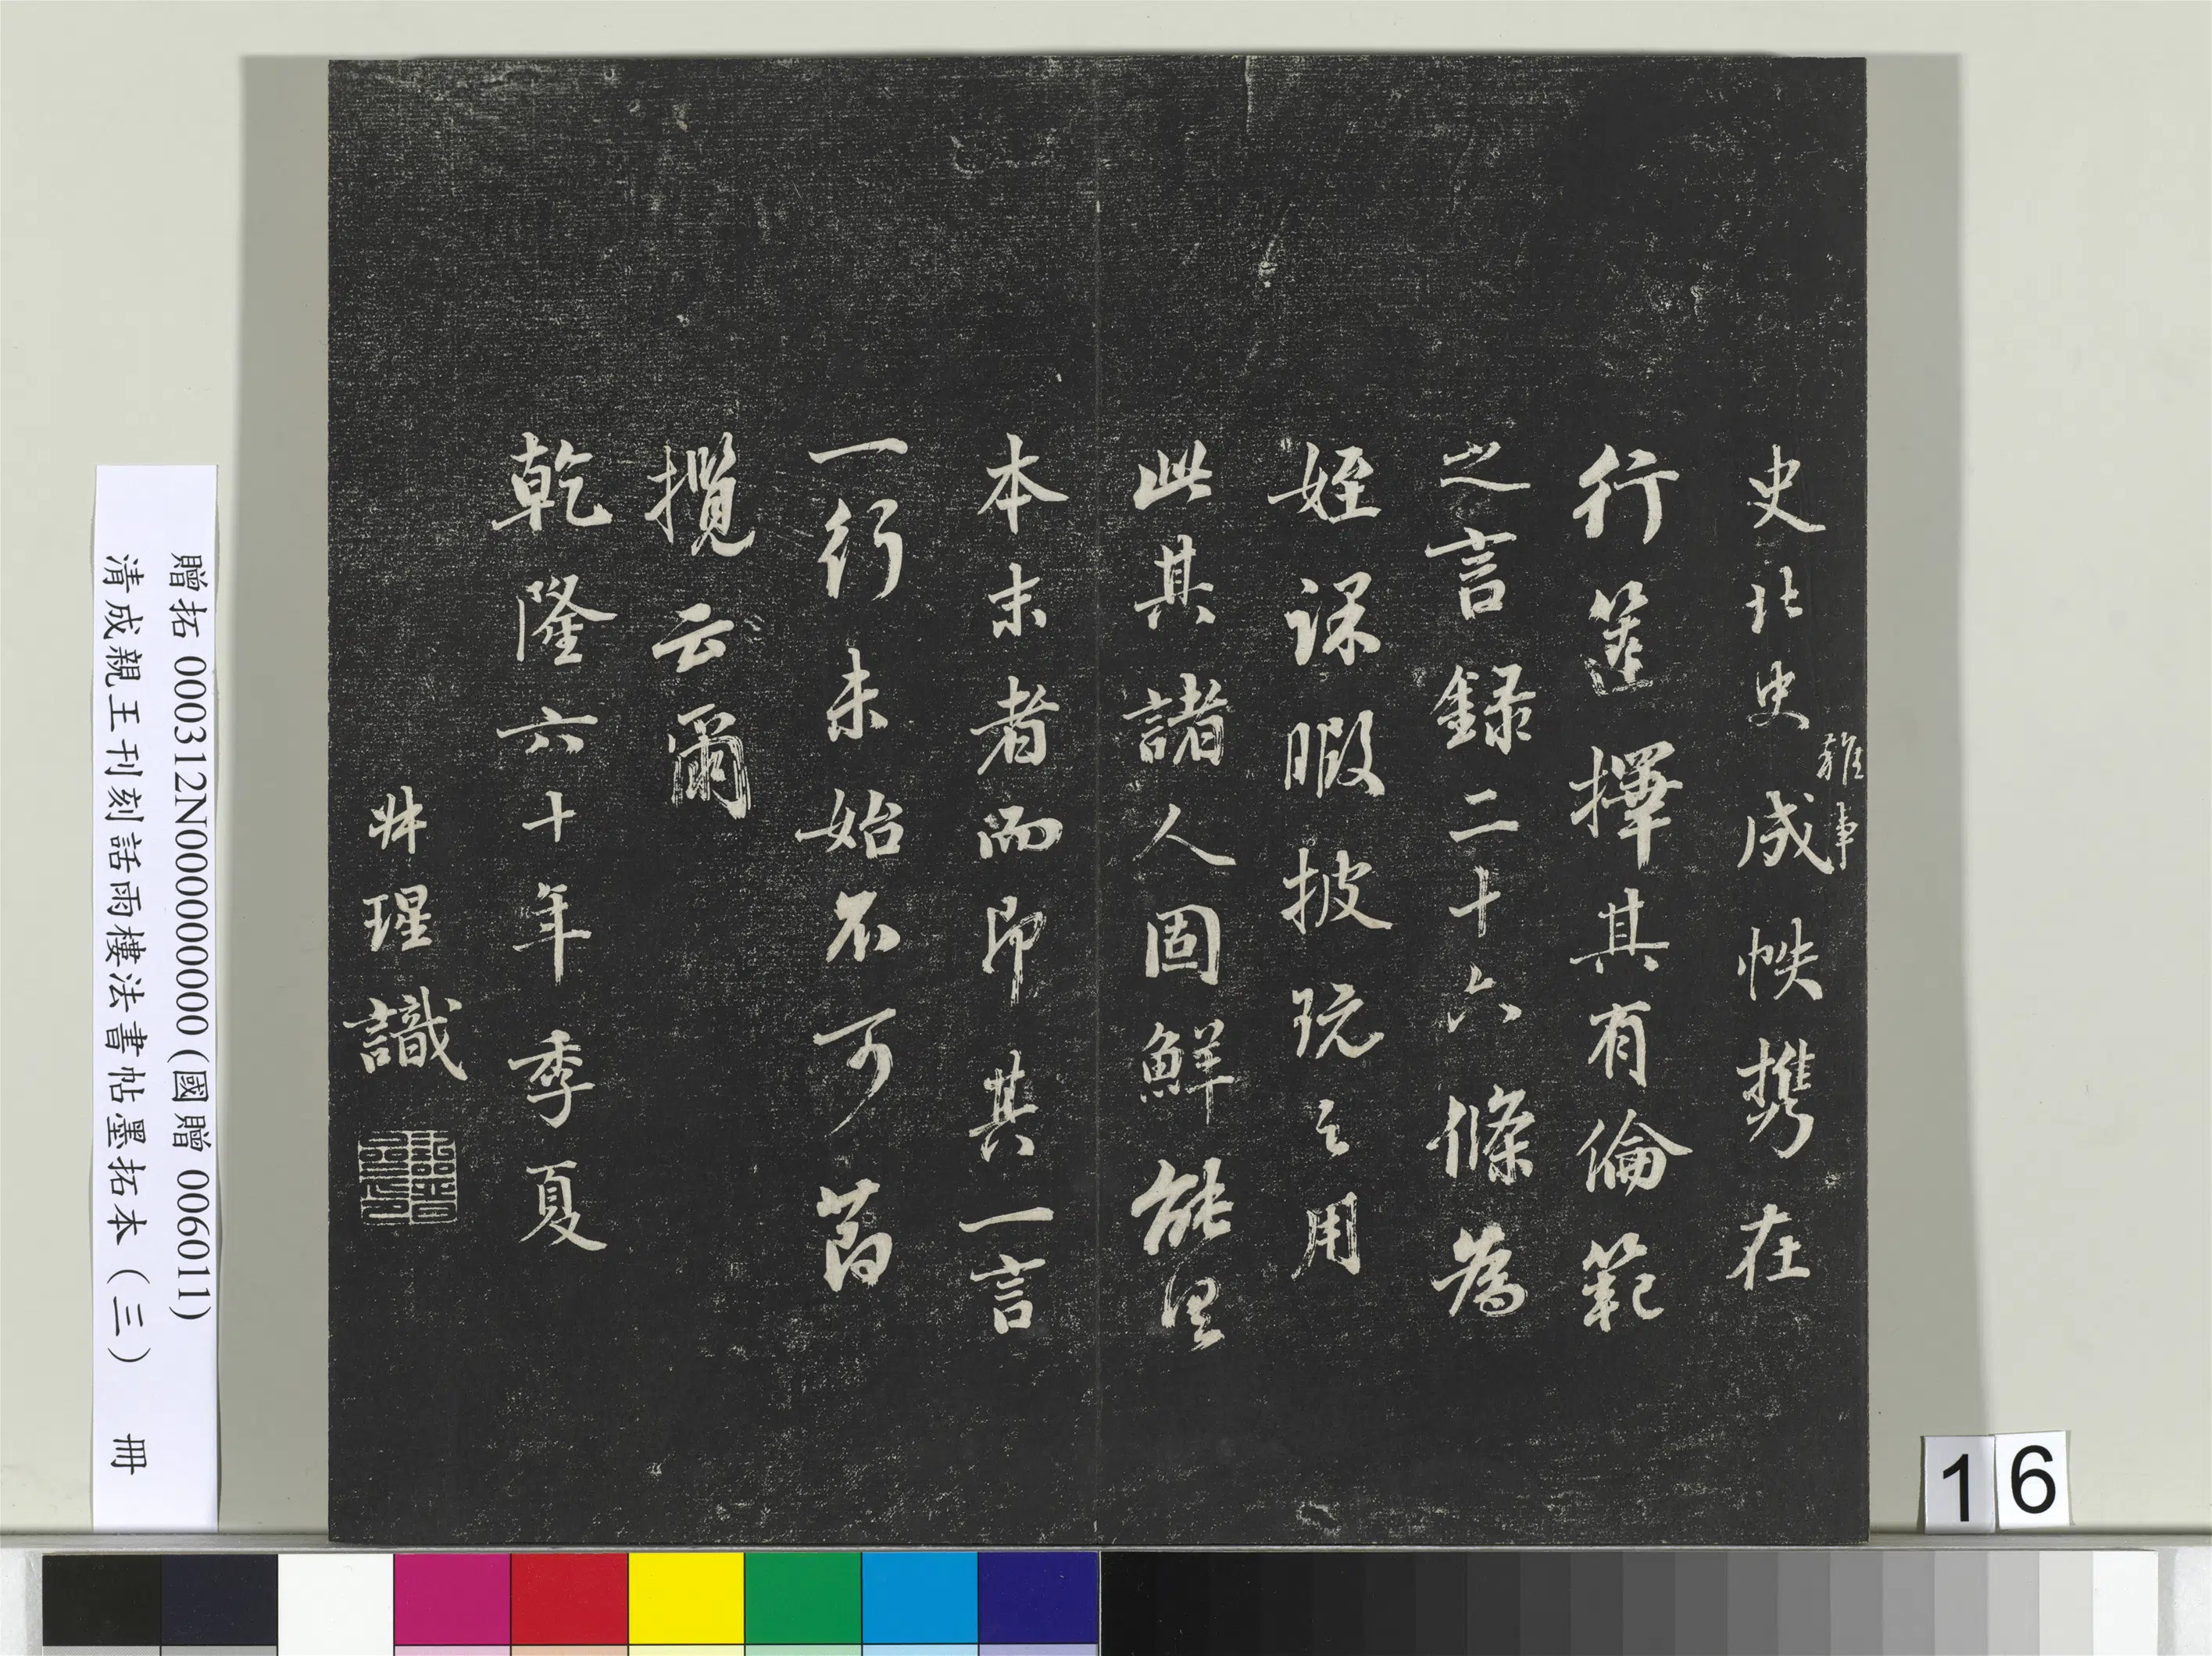 史北史成帙携在
雜事
行篋擇其有倫範
之言録二十六條為
姪課暇披玩之用
此其諸人固鮮能
本末者而即其一言
一行未始不可
攬云爾
乾隆六十年季夏
瑆識
贈拓 000312N000000000 (國贈 006011)
清成親王刊刻話雨樓法書帖墨拓本（三） 冊
16